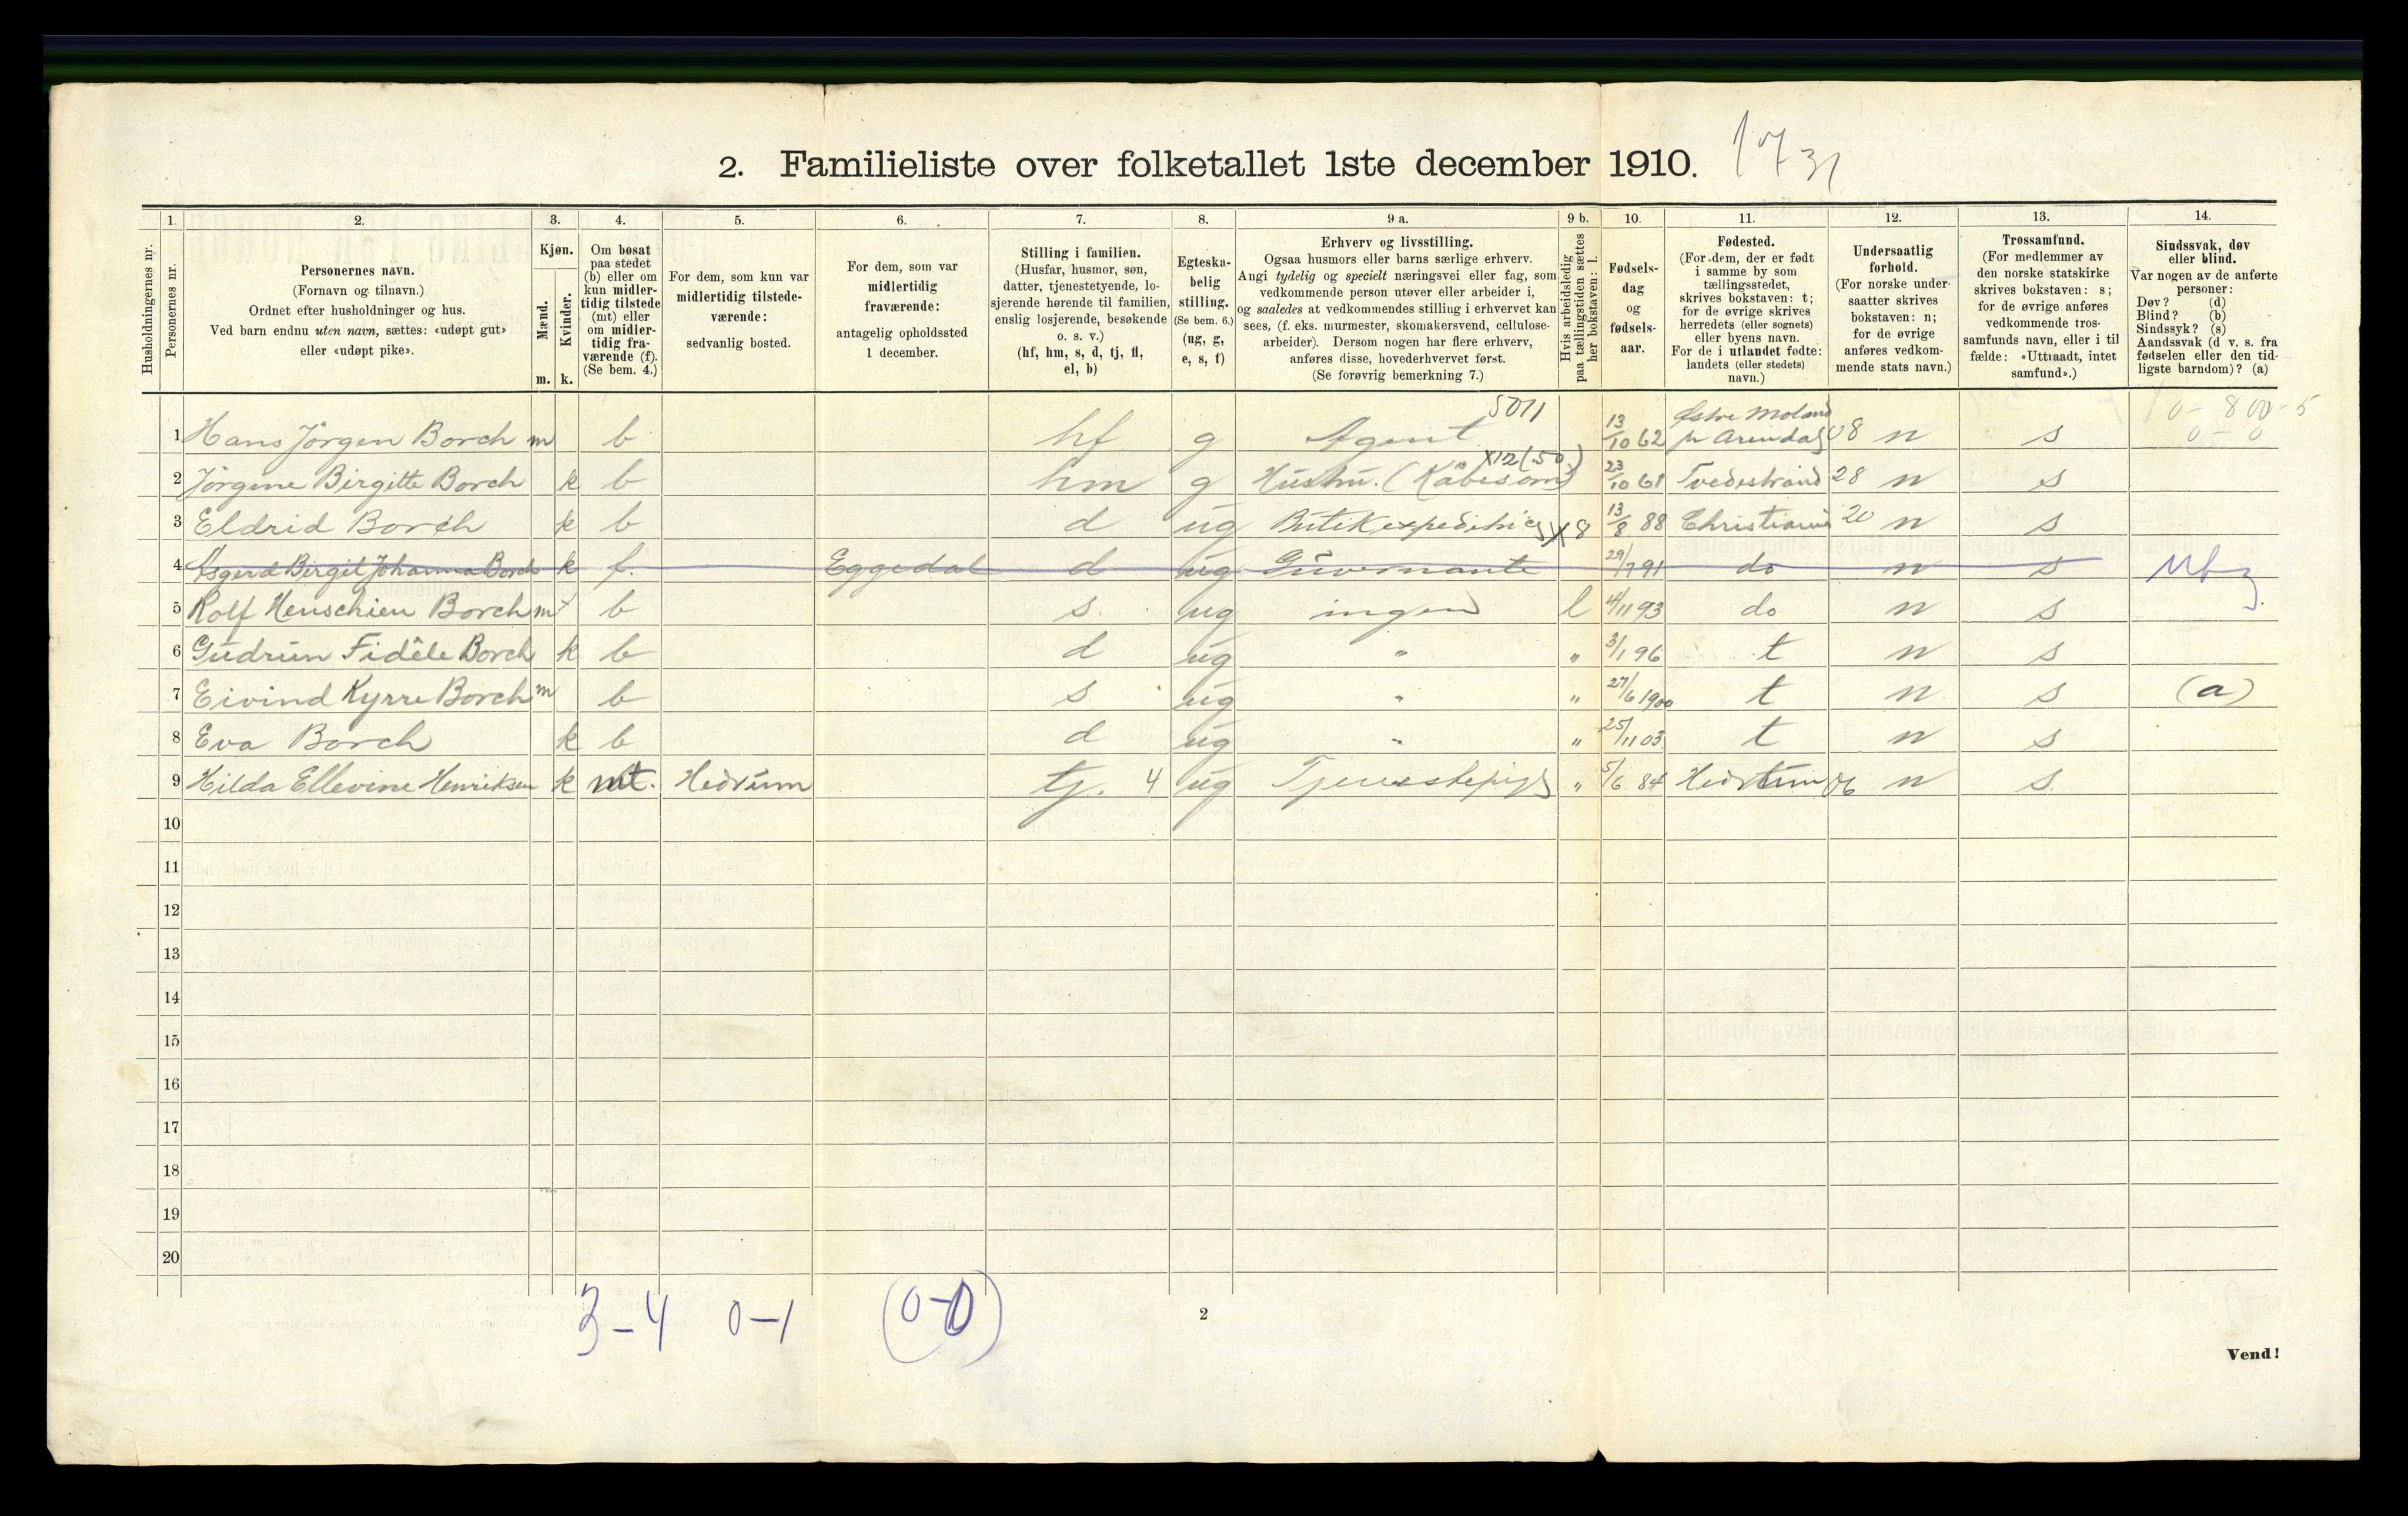 2. Familieliste over folketallet 1ste december 1910. 1731
Husholdningernes nr.
1.
Personernes nr.
2.
Personernes navn.
(Fornavn og tilnavn.)
Ordnet efter husholdninger og hus.
Ved barn endnu uten navn, sættes: «udøpt gut»
eller «udøpt pike».
3.
Kjøn.
Mænd. Kvinder.
m. k.
4.
Om bosat
paa stedet
(b) eller om
kun midler-
tidig tilstede
(mt) eller
om midler-
tidig fra-
værende (f).
(Se bem. 4.)
5.
For dem, som kun var
midlertidig tilstede-
værende:
sedvanlig bosted.
6.
For dem, som var
midlertidig
fraværende:
antagelig opholdssted
1 december.
7.
Stilling i familien.
(Husfar, husmor, søn,
datter, tjenestetyende, lo-
sjerende hørende til familien,
enslig losjerende, besøkende
o. s. v.)
(hf, hm, s, d, tj, fl,
el, b)
8.
Egteska-
belig
stilling.
(Se bem. 6.)
(ug, g,
e, s, f)
9 a.
Erhverv og livsstilling.
Ogsaa husmors eller barns særlige erhverv.
Angi tydelig og specielt næringsvei eller fag, som
vedkommende person utøver eller arbeider i,
og saaledes at vedkommendes stilling i erhvervet kan
sees, (f. eks. murmester, skomakersvend, cellulose-
arbeider). Dersom nogen har flere erhverv,
anføres disse, hovederhvervet først.
(Se forøvrig bemerkning 7.)
9 b.
Hvis arbeidsledig
paa tællingstiden sættes
her bokstaven: l.
10.
Fødsels-
dag
og
fødsels-
aar.
11.
Fødested.
(For dem, der er født
i samme by som
tællingsstedet,
skrives bokstaven: t;
for de øvrige skrives
herredets (eller sognets)
eller byens navn.
For de i utlandet fødte:
landets (eller stedets)
navn.)
12.
Undersaatlig
forhold.
(For norske under-
saatter skrives
bokstaven: n;
for de øvrige
anføres vedkom-
mende stats navn.)
13.
Trossamfund.
(For medlemmer av
den norske statskirke
skrives bokstaven: s;
for de øvrige anføres
vedkommende tros-
samfunds navn, eller i til
fælde: «Uttraadt, intet
samfund».)
14.
Sindssvak, døv
eller blind.
Var nogen av de anførte
personer:
Døv? (d)
Blind? (b)
Sindssyk? (s)
Aandssvak (d v. s. fra
fødselen eller den tid-
ligste barndom)? (a)
5011 Østre Moland 0 - 800 - 5
1 Hans Jörgen Borch m b hf g Agent 13/10 62 pr Arendal 08 n s 0 - 0
X12(50)
2 Jörgine Birgitte Borch k b hm g Hüstru. (Kåbesöm) 23/10 61 Tvedestrand 28 n s
3 Eldrid Borch k b d ug Bütikexpeditrice X8 13/8 88 Christiania 20 n s
4 Asgerd Birgit Johanna Borch k f. Eggedal d ug Güvernante 29/7 91 do n s
5 Rolf Henschien Borch m b s. ug ingen l 4/11 93 do n s
6 Güdrün Fidêle Borch k b d ug " " 3/1 96 t n s
7 Eivind Kyrre Borch m b s ug " " 27/6 1900 t n s (a)
8 Eva Borch k b d ug " " 25/11 03 t n s
9 Hilda Ellevine Henriksen k mt. Hedrüm tj. 4 ug Tjenestepige " 5/6 84 Hedrüm 06 n s.
10
11
12
13
14
15
16
17
18
19
20
3 - 4 0 - 1 (0 - 0)
2
Vend!